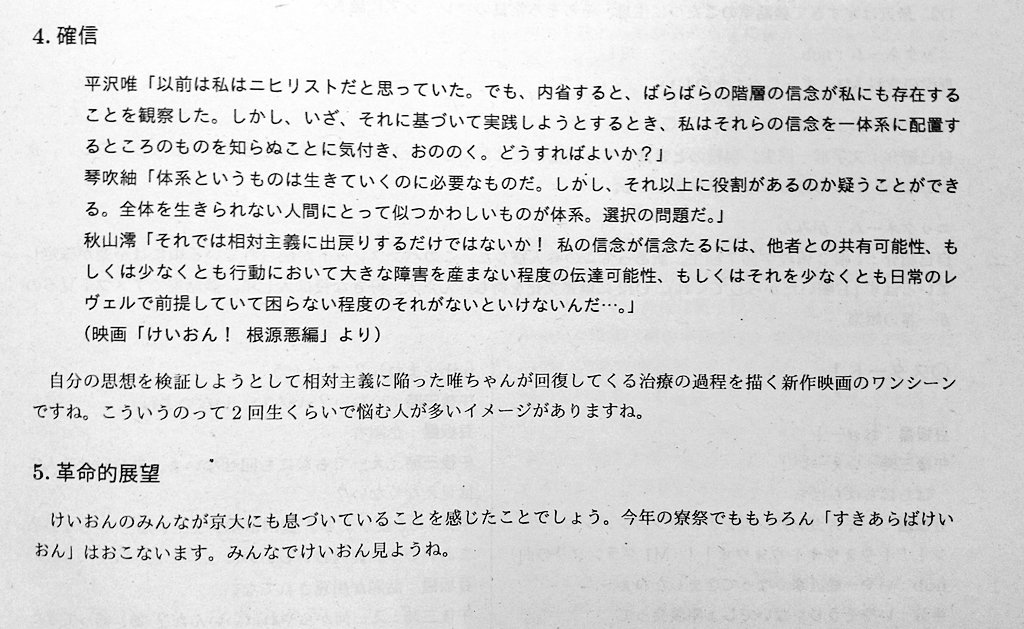 4. 確信
平沢唯「以前は私はニヒリストだと思っていた。でも、内省すると、ばらばらの階層の信念が私にも存在する
ことを観察した。しかし、いざ、それに基づいて実践しようとするとき、私はそれらの信念を一体系に配置す
るところのものを知らぬことに気付き、おののく。どうすればよいか？」
琴吹紬「体系というものは生きていくのに必要なものだ。しかし、それ以上に役割があるのか疑うことができ
る。全体を生きられない人間にとって似つかわしいものが体系。選択の問題だ。」
秋山澪「それでは相対主義に出戻りするだけではないか！ 私の信念が信念たるには、他者との共有可能性、も
しくは少なくとも行動において大きな障害を産まない程度の伝達可能性、もしくはそれを少なくとも日常のレ
ヴェルで前提していて困らない程度のそれがないといけないんだ…。」
（映画「けいおん！ 根源悪編」より）
自分の思想を検証しようとして相対主義に陥った唯ちゃんが回復してくる治療の過程を描く新作映画のワンシーン
ですね。こういうのって2回生くらいで悩む人が多いイメージがありますね。
5. 革命的展望
けいおんのみんなが京大にも息づいていることを感じたことでしょう。今年の寮祭でももちろん「すきあらばけい
おん」はおこないます。みんなでけいおん見ようね。